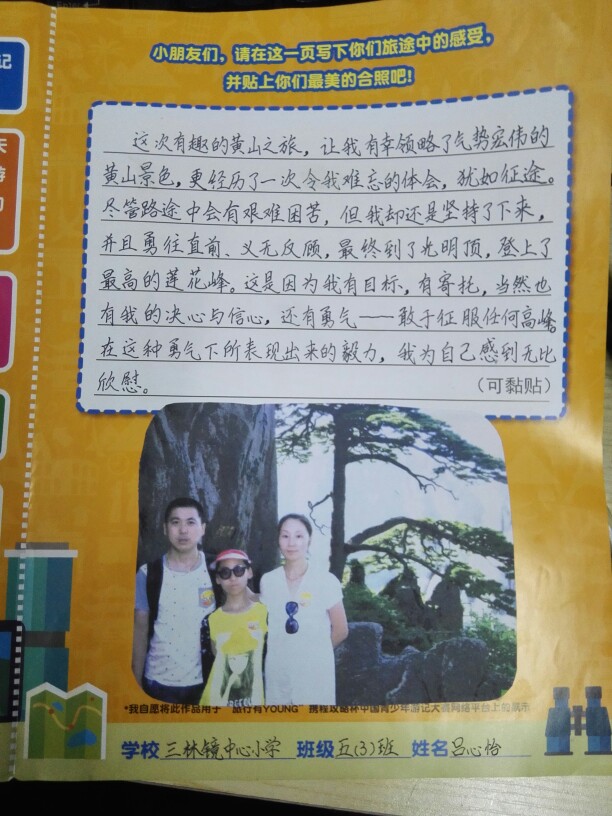 小朋友们，请在这一页写下你们旅途中的感受，
并贴上你们最美的合照吧！
记
天
游
这次有趣的黄山之旅，让我有幸领略了气势宏伟的
黄山景色，更经历了一次令我难忘的体会，犹如征途。
尽管路途中会有艰难困苦，但我却还是坚持了下来，
并且勇往直前、义无反顾，最终到了光明顶，登上了
最高的莲花峰。这是因为我有目标，有寄托，当然也
有我的决心与信心，还有勇气——敢于征服任何高峰。
在这种勇气下所表现出来的毅力，我为自己感到无比
欣慰。
（可黏贴）
*我自愿将此作品用于“旅行有YOUNG”携程攻略杯中国青少年游记大赛网络平台上的展示
学校 三林镜中心小学 班级 五(3)班 姓名 吕心怡